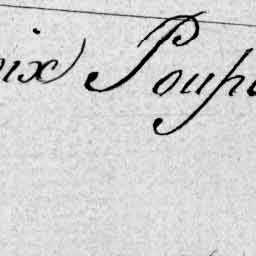 oix Poup